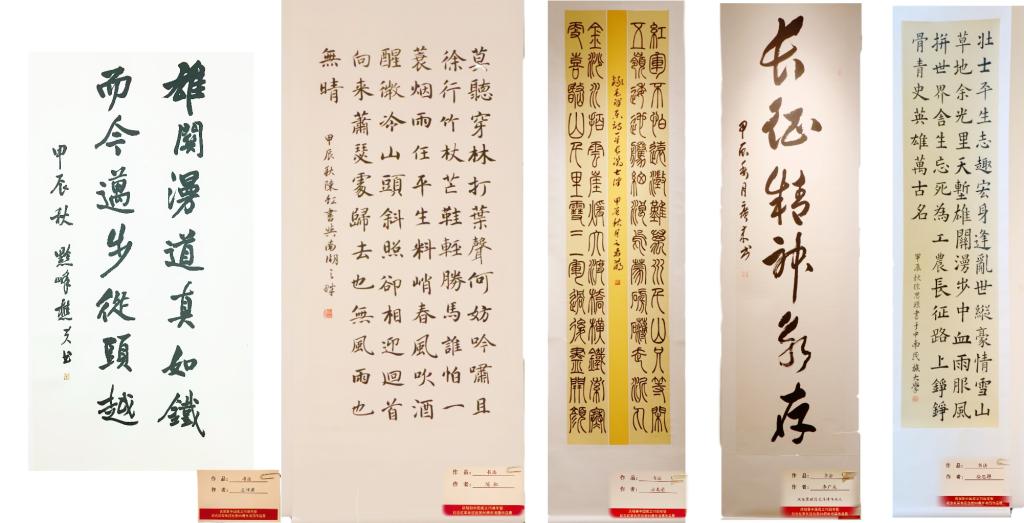 雄關漫道真如鐵
而今邁步從頭越
甲辰秋
作 品： 书法
作 者：
莫聽穿林打葉聲何妨吟嘯且
徐行竹杖芒鞋輕勝馬誰怕一
蓑烟雨任平生料峭春風吹酒
醒微冷山頭斜照卻相迎迴首
向來蕭瑟處歸去也無風雨也
無晴
甲辰秋陳紅書與南湖之畔
作 品： 书法
作 者： 陈红
紅軍不怕遠征難萬水千山只等閑
五嶺逶迤騰細浪烏蒙磅礴走泥丸
金沙水拍雲崖暖大渡橋橫鐵索寒
更喜岷山千里雪三軍過後盡開顏
作 品： 书法
作 者：
长征精神永存
甲辰秋月
作 品： 书法
作 者：
壮士平生志趣宏身逢亂世縱豪情雪山
草地余光里天塹雄關漫步中血雨服風
拼世界舍生忘死為工農長征路上錚錚
骨青史英雄萬古名
甲辰秋徐思 書于中南民族大學
作 品： 书法
作 者：